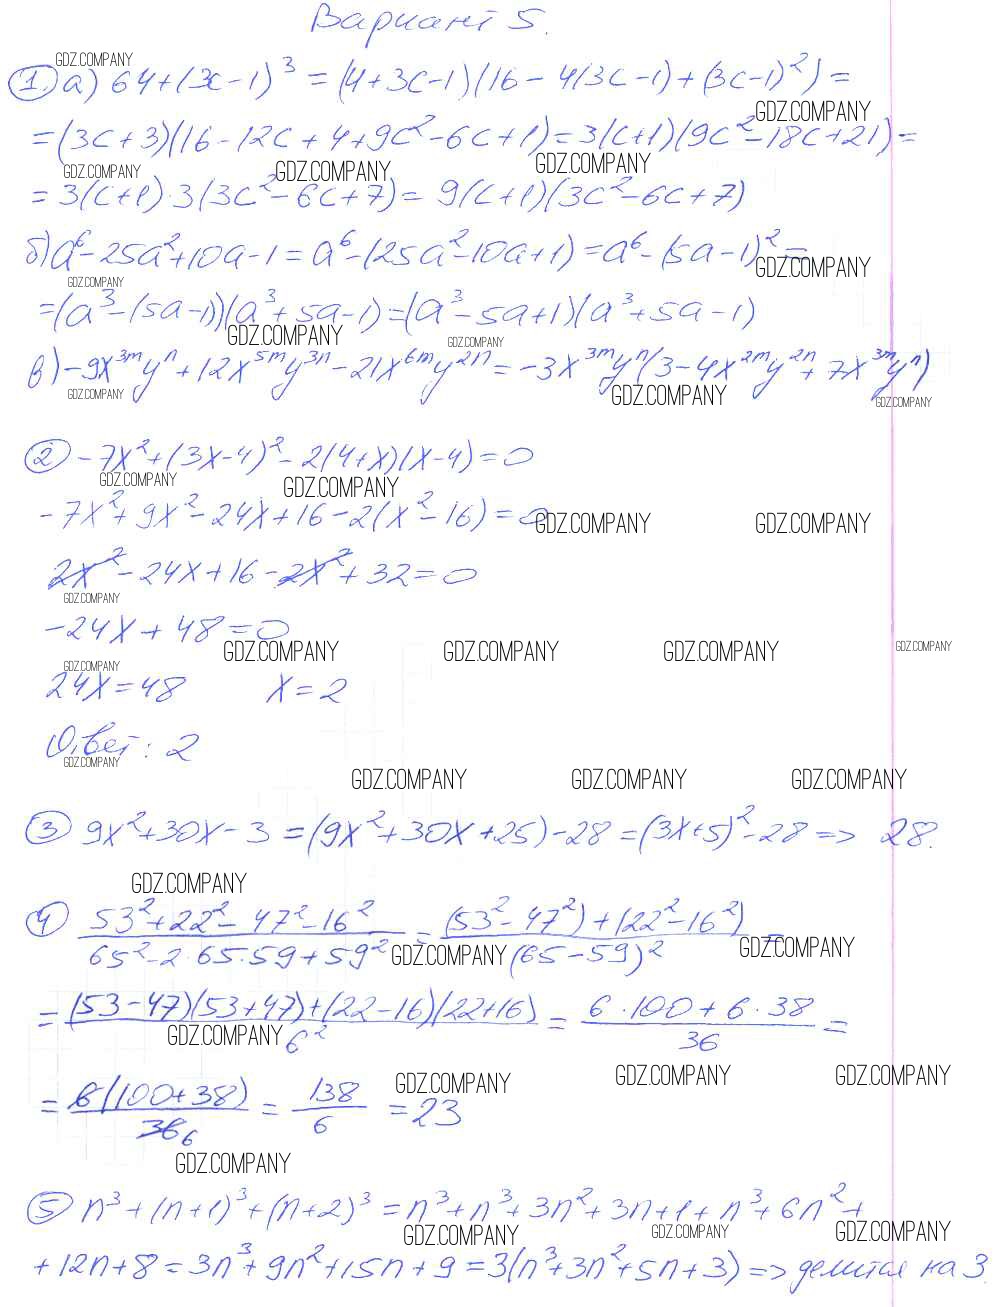 Вариант 5.
GDZ.COMPANY
1) а) 64+(3c-1)³ = (4+3c-1)(16-4(3c-1)+(3c-1)²) =
GDZ.COMPANY
=(3c+3)(16-12c+4+9c²-6c+1)=3(c+1)(9c²-18c+21)=
GDZ.COMPANY GDZ.COMPANY GDZ.COMPANY
= 3(c+1)·3(3c²-6c+7)= 9(c+1)(3c²-6c+7)
б) a⁶-25a²+10a-1 = a⁶-(25a²-10a+1)=a⁶-(5a-1)²=
GDZ.COMPANY GDZ.COMPANY
=(a³-(5a-1))(a³+5a-1)=(a³-5a+1)(a³+5a-1)
GDZ.COMPANY GDZ.COMPANY
в) -9x³ᵐyⁿ+12x⁵ᵐy³ⁿ-21x⁶ᵐy²ⁿ=-3x³ᵐyⁿ(3-4x²ᵐy²ⁿ+7x³ᵐyⁿ)
GDZ.COMPANY GDZ.COMPANY GDZ.COMPANY
2) -7x²+(3x-4)²-2(4+x)(x-4)=0
GDZ.COMPANY GDZ.COMPANY
-7x²+9x²-24x+16-2(x²-16)=0
GDZ.COMPANY GDZ.COMPANY
2x²-24x+16-2x²+32=0
GDZ.COMPANY
-24x+48=0
GDZ.COMPANY GDZ.COMPANY GDZ.COMPANY GDZ.COMPANY
GDZ.COMPANY
24x=48 x=2
Ответ: 2
GDZ.COMPANY
GDZ.COMPANY GDZ.COMPANY GDZ.COMPANY
3) 9x²+30x-3 =(9x²+30x+25)-28=(3x+5)²-28 => 28.
GDZ.COMPANY
4) (53²+22²-47²-16²)/(65²-2·65·59+59²) = ((53²-47²)+(22²-16²))/(65-59)² =
GDZ.COMPANY GDZ.COMPANY
= ((53-47)(53+47)+(22-16)(22+16))/6² = (6·100+6·38)/36 =
GDZ.COMPANY
GDZ.COMPANY GDZ.COMPANY GDZ.COMPANY
= 6(100+38)/36 6 = 138/6 = 23
GDZ.COMPANY
5) n³+(n+1)³+(n+2)³ = n³+n³+3n²+3n+1+n³+6n²+
GDZ.COMPANY GDZ.COMPANY GDZ.COMPANY
+12n+8=3n³+9n²+15n+9=3(n³+3n²+5n+3)=> делится на 3.